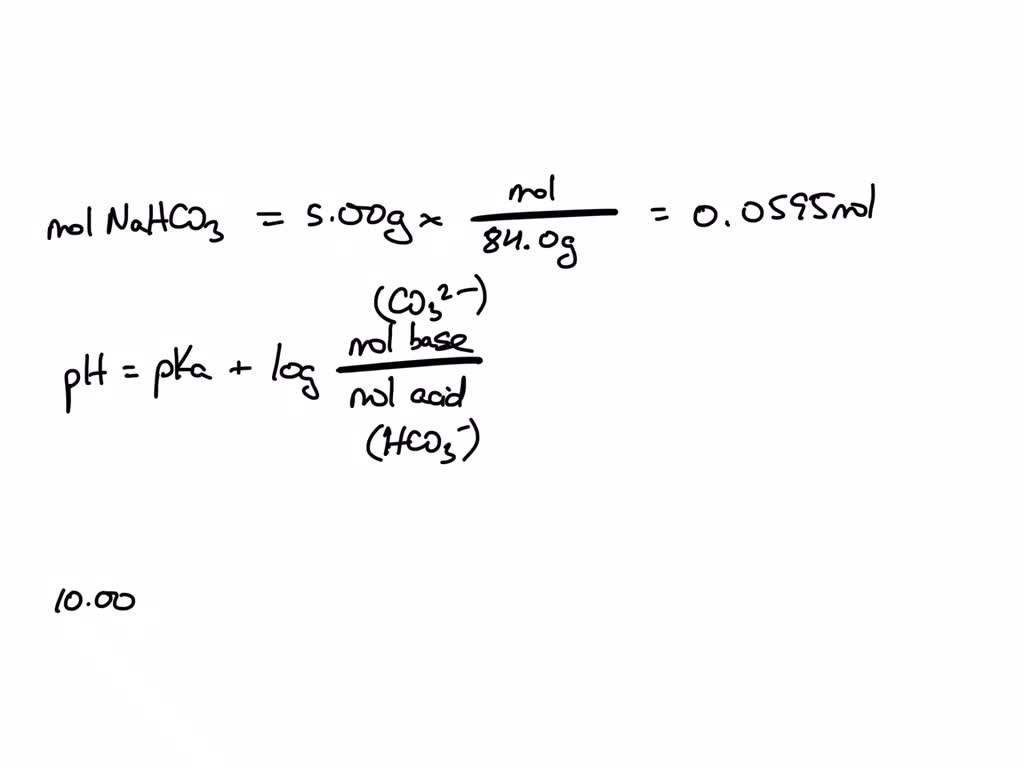 mol NaHCO₃ = 5.00g × mol / 84.0g = 0.0595mol
(CO₃²⁻)
pH = pKa + log mol base / mol acid
(HCO₃⁻)
10.00